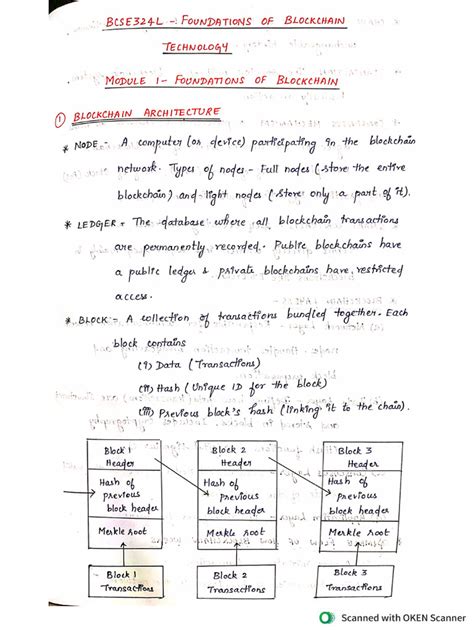 BCSE324L -: FOUNDATIONS OF BLOCKCHAIN
TECHNOLOGY
MODULE 1 - FOUNDATIONS OF BLOCKCHAIN
① BLOCKCHAIN ARCHITECTURE
* NODE - A computer (or device) participating in the blockchain
network. Types of nodes - Full nodes (store the entire
blockchain) and light nodes (store only a part of it).
* LEDGER - The database where all blockchain transactions
are permanently recorded. Public blockchains have
a public ledger & private blockchains have restricted
access.
* BLOCK - A collection of transactions bundled together. Each
block contains
(i) Data (Transactions)
(ii) Hash (Unique ID for the block)
(iii) Previous block's hash (linking it to the chain).
Block 1
Header
Hash of
previous
block header
Merkle root
Block 1
Transactions
Block 2
Header
Hash of
previous
block header
Merkle root
Block 2
Transactions
Block 3
Header
Hash of
previous
block header
Merkle root
Block 3
Transactions
Scanned with OKEN Scanner